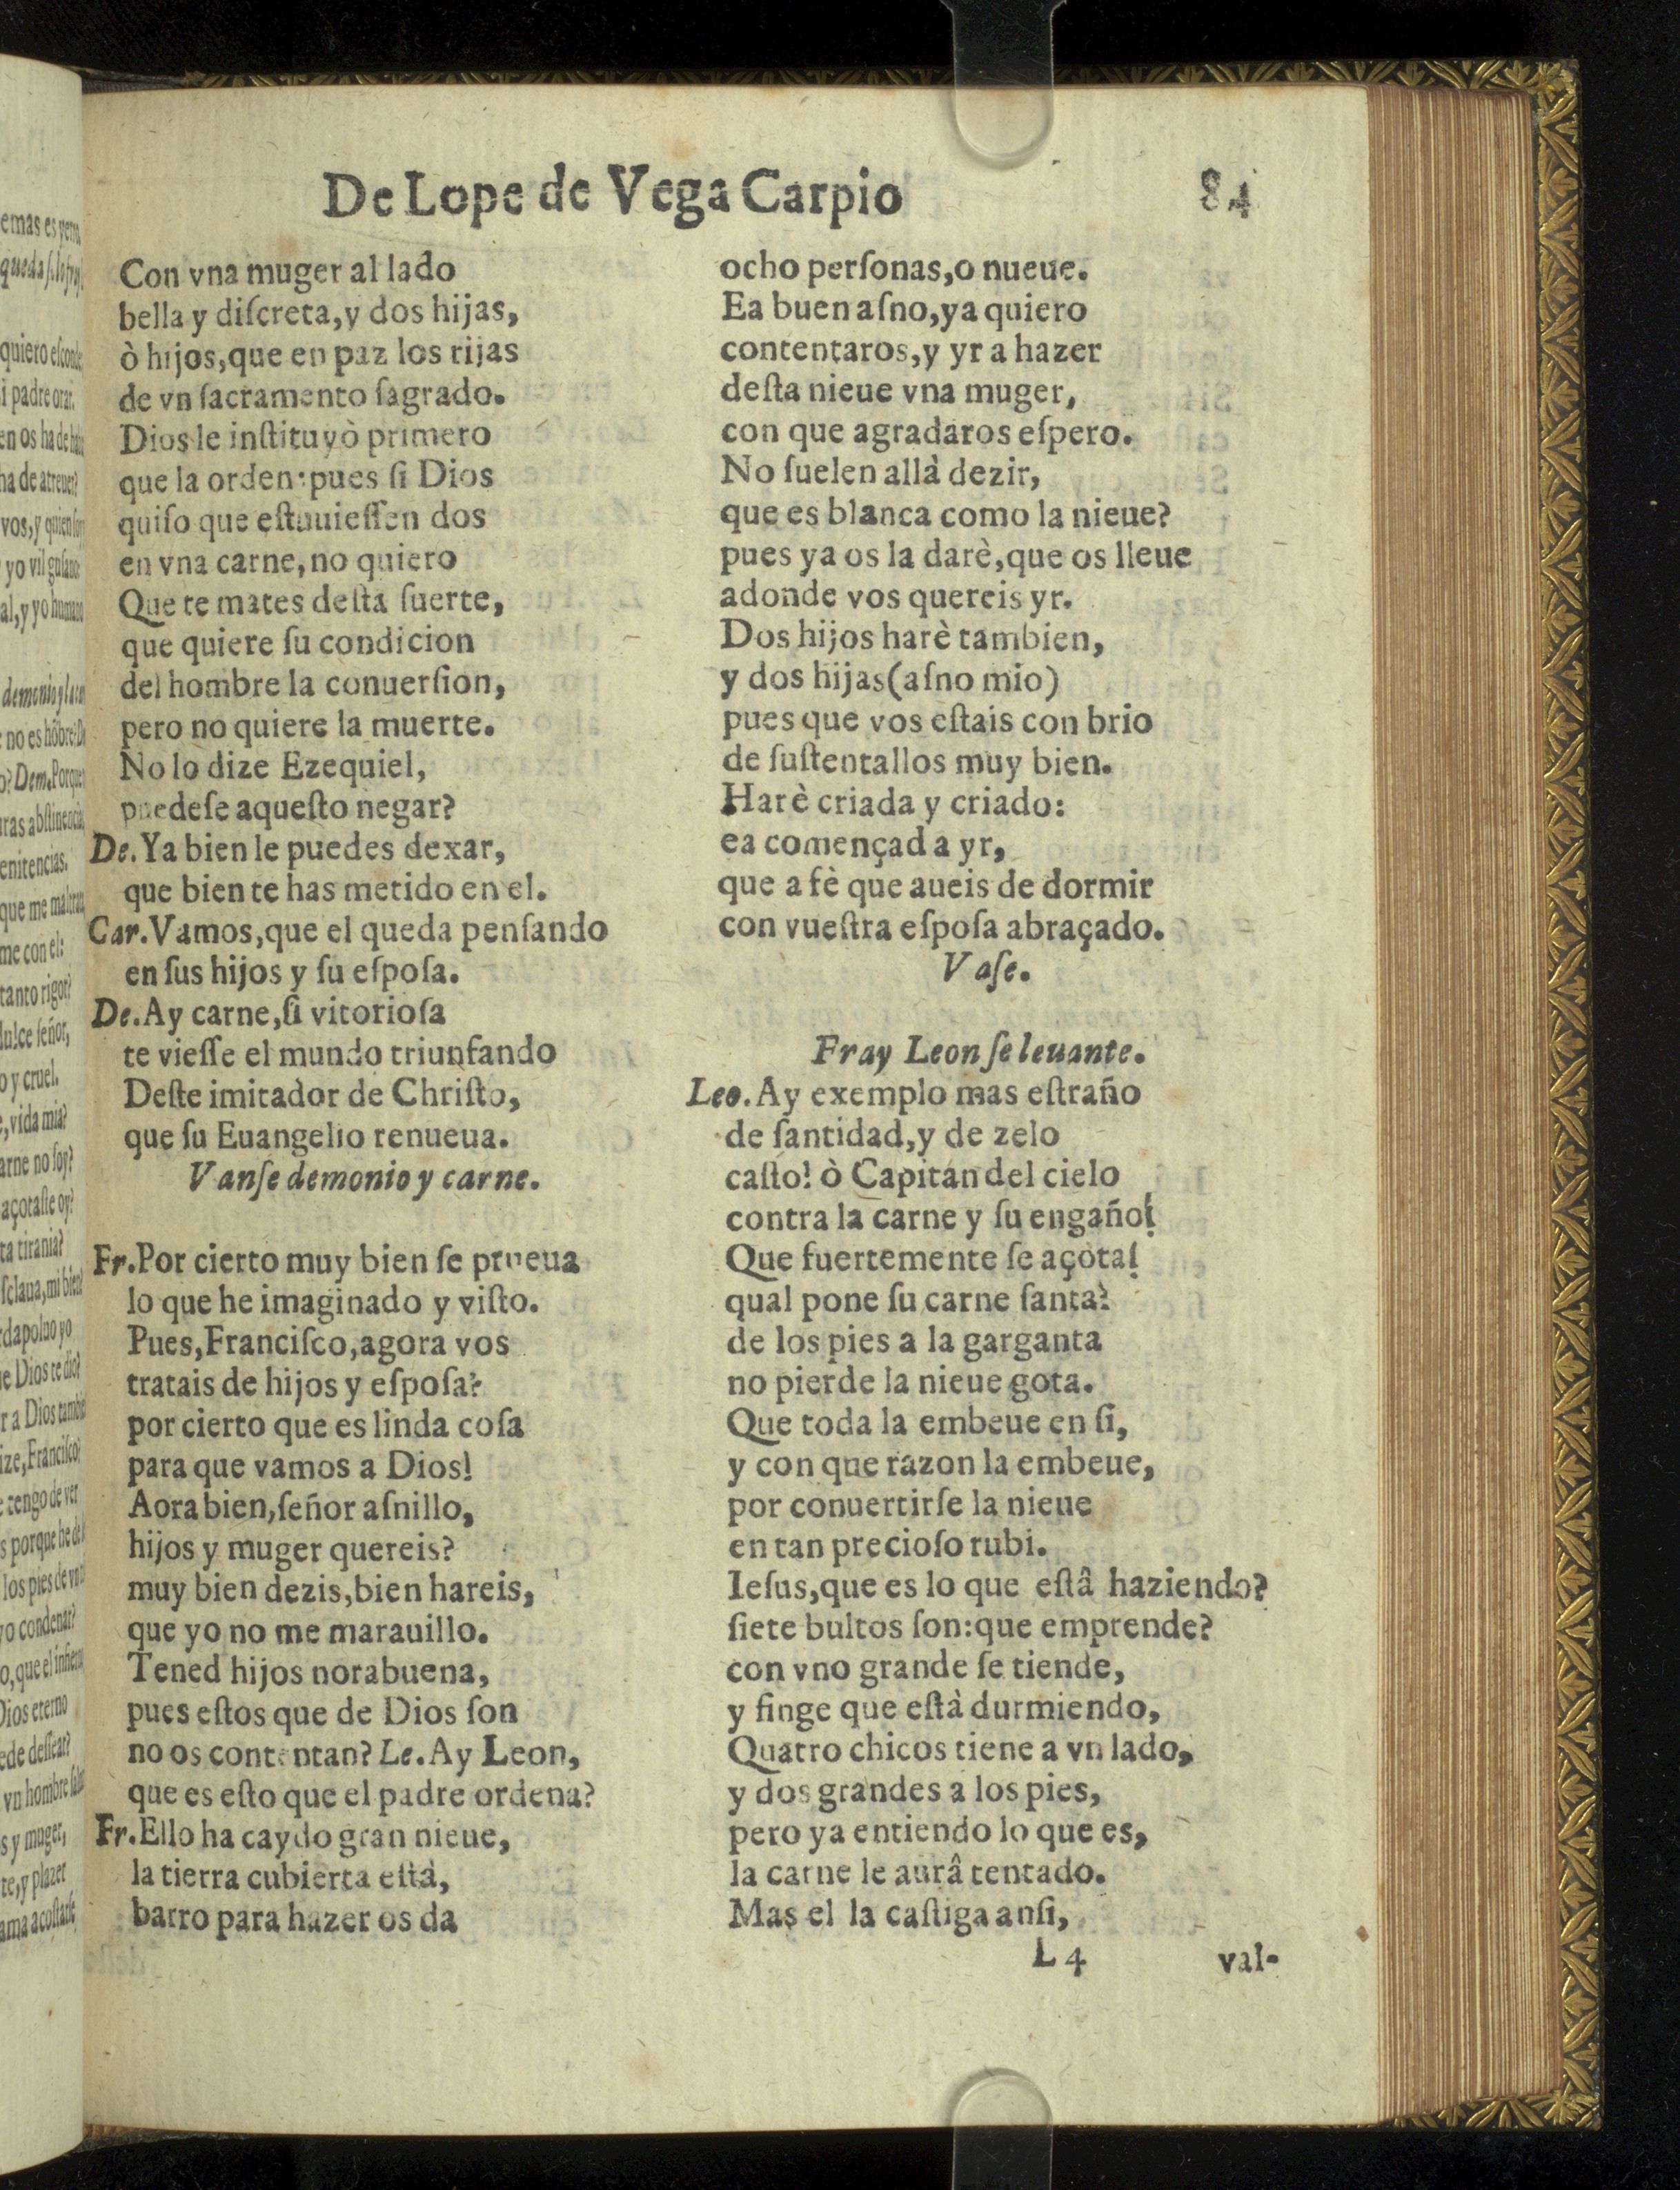 De Lope de Vega Carpio 84
Con vna muger al lado
bella y diſcreta, y dos hijas,
ò hijos, que en paz los rijas
de vn ſacramento ſagrado.
Dios le inſtituyò primero
que la orden: pues ſi Dios
quiſo que eſtuuieſſen dos
en vna carne, no quiero
Que te mates deſta ſuerte,
que quiere ſu condicion
del hombre la conuerſion,
pero no quiere la muerte.
No lo dize Ezequiel,
puedeſe aqueſto negar?
De. Ya bien le puedes dexar,
que bien te has metido en el.
Car. Vamos, que el queda penſando
en ſus hijos y ſu eſpoſa.
De. Ay carne, ſi vitorioſa
te vieſſe el mundo triunfando
Deſte imitador de Chriſto,
que ſu Euangelio renueua.
Vanſe demonio y carne.
Fr. Por cierto muy bien ſe prueua
lo que he imaginado y viſto.
Pues, Franciſco, agora vos
tratais de hijos y eſpoſa?
por cierto que es linda coſa
para que vamos a Dios!
Aora bien, ſeñor aſnillo,
hijos y muger quereis?
muy bien dezis, bien hareis,
que yo no me marauillo.
Tened hijos norabuena,
pues eſtos que de Dios ſon
no os contentan? Le. Ay Leon,
que es eſto que el padre ordena?
Fr. Ello ha caydo gran nieue,
la tierra cubierta eſtá,
barro para hazer os da
ocho perſonas, o nueue.
Ea buen aſno, ya quiero
contentaros, y yr a hazer
deſta nieue vna muger,
con que agradaros eſpero.
No ſuelen allà dezir,
que es blanca como la nieue?
pues ya os la darè, que os lleue
adonde vos quereis yr.
Dos hijos harè tambien,
y dos hijas (aſno mio)
pues que vos eſtais con brio
de ſuſtentallos muy bien.
Harè criada y criado:
ea començad a yr,
que a fè que aueis de dormir
con vueſtra eſpoſa abraçado.
Vaſe.
Fray Leon ſe leuante.
Leo. Ay exemplo mas eſtraño
de ſantidad, y de zelo
caſto! ò Capitan del cielo
contra la carne y ſu engaño!
Que fuertemente ſe açota!
qual pone ſu carne ſanta?
de los pies a la garganta
no pierde la nieue gota.
Que toda la embeue en ſi,
y con que razon la embeue,
por conuertirſe la nieue
en tan precioſo rubi.
Ieſus, que es lo que eſtâ haziendo?
ſiete bultos ſon: que emprende?
con vno grande ſe tiende,
y finge que eſtà durmiendo,
Quatro chicos tiene a vn lado,
y dos grandes a los pies,
pero ya entiendo lo que es,
la carne le aurâ tentado.
Mas el la caſtiga anſi,
L 4 val-